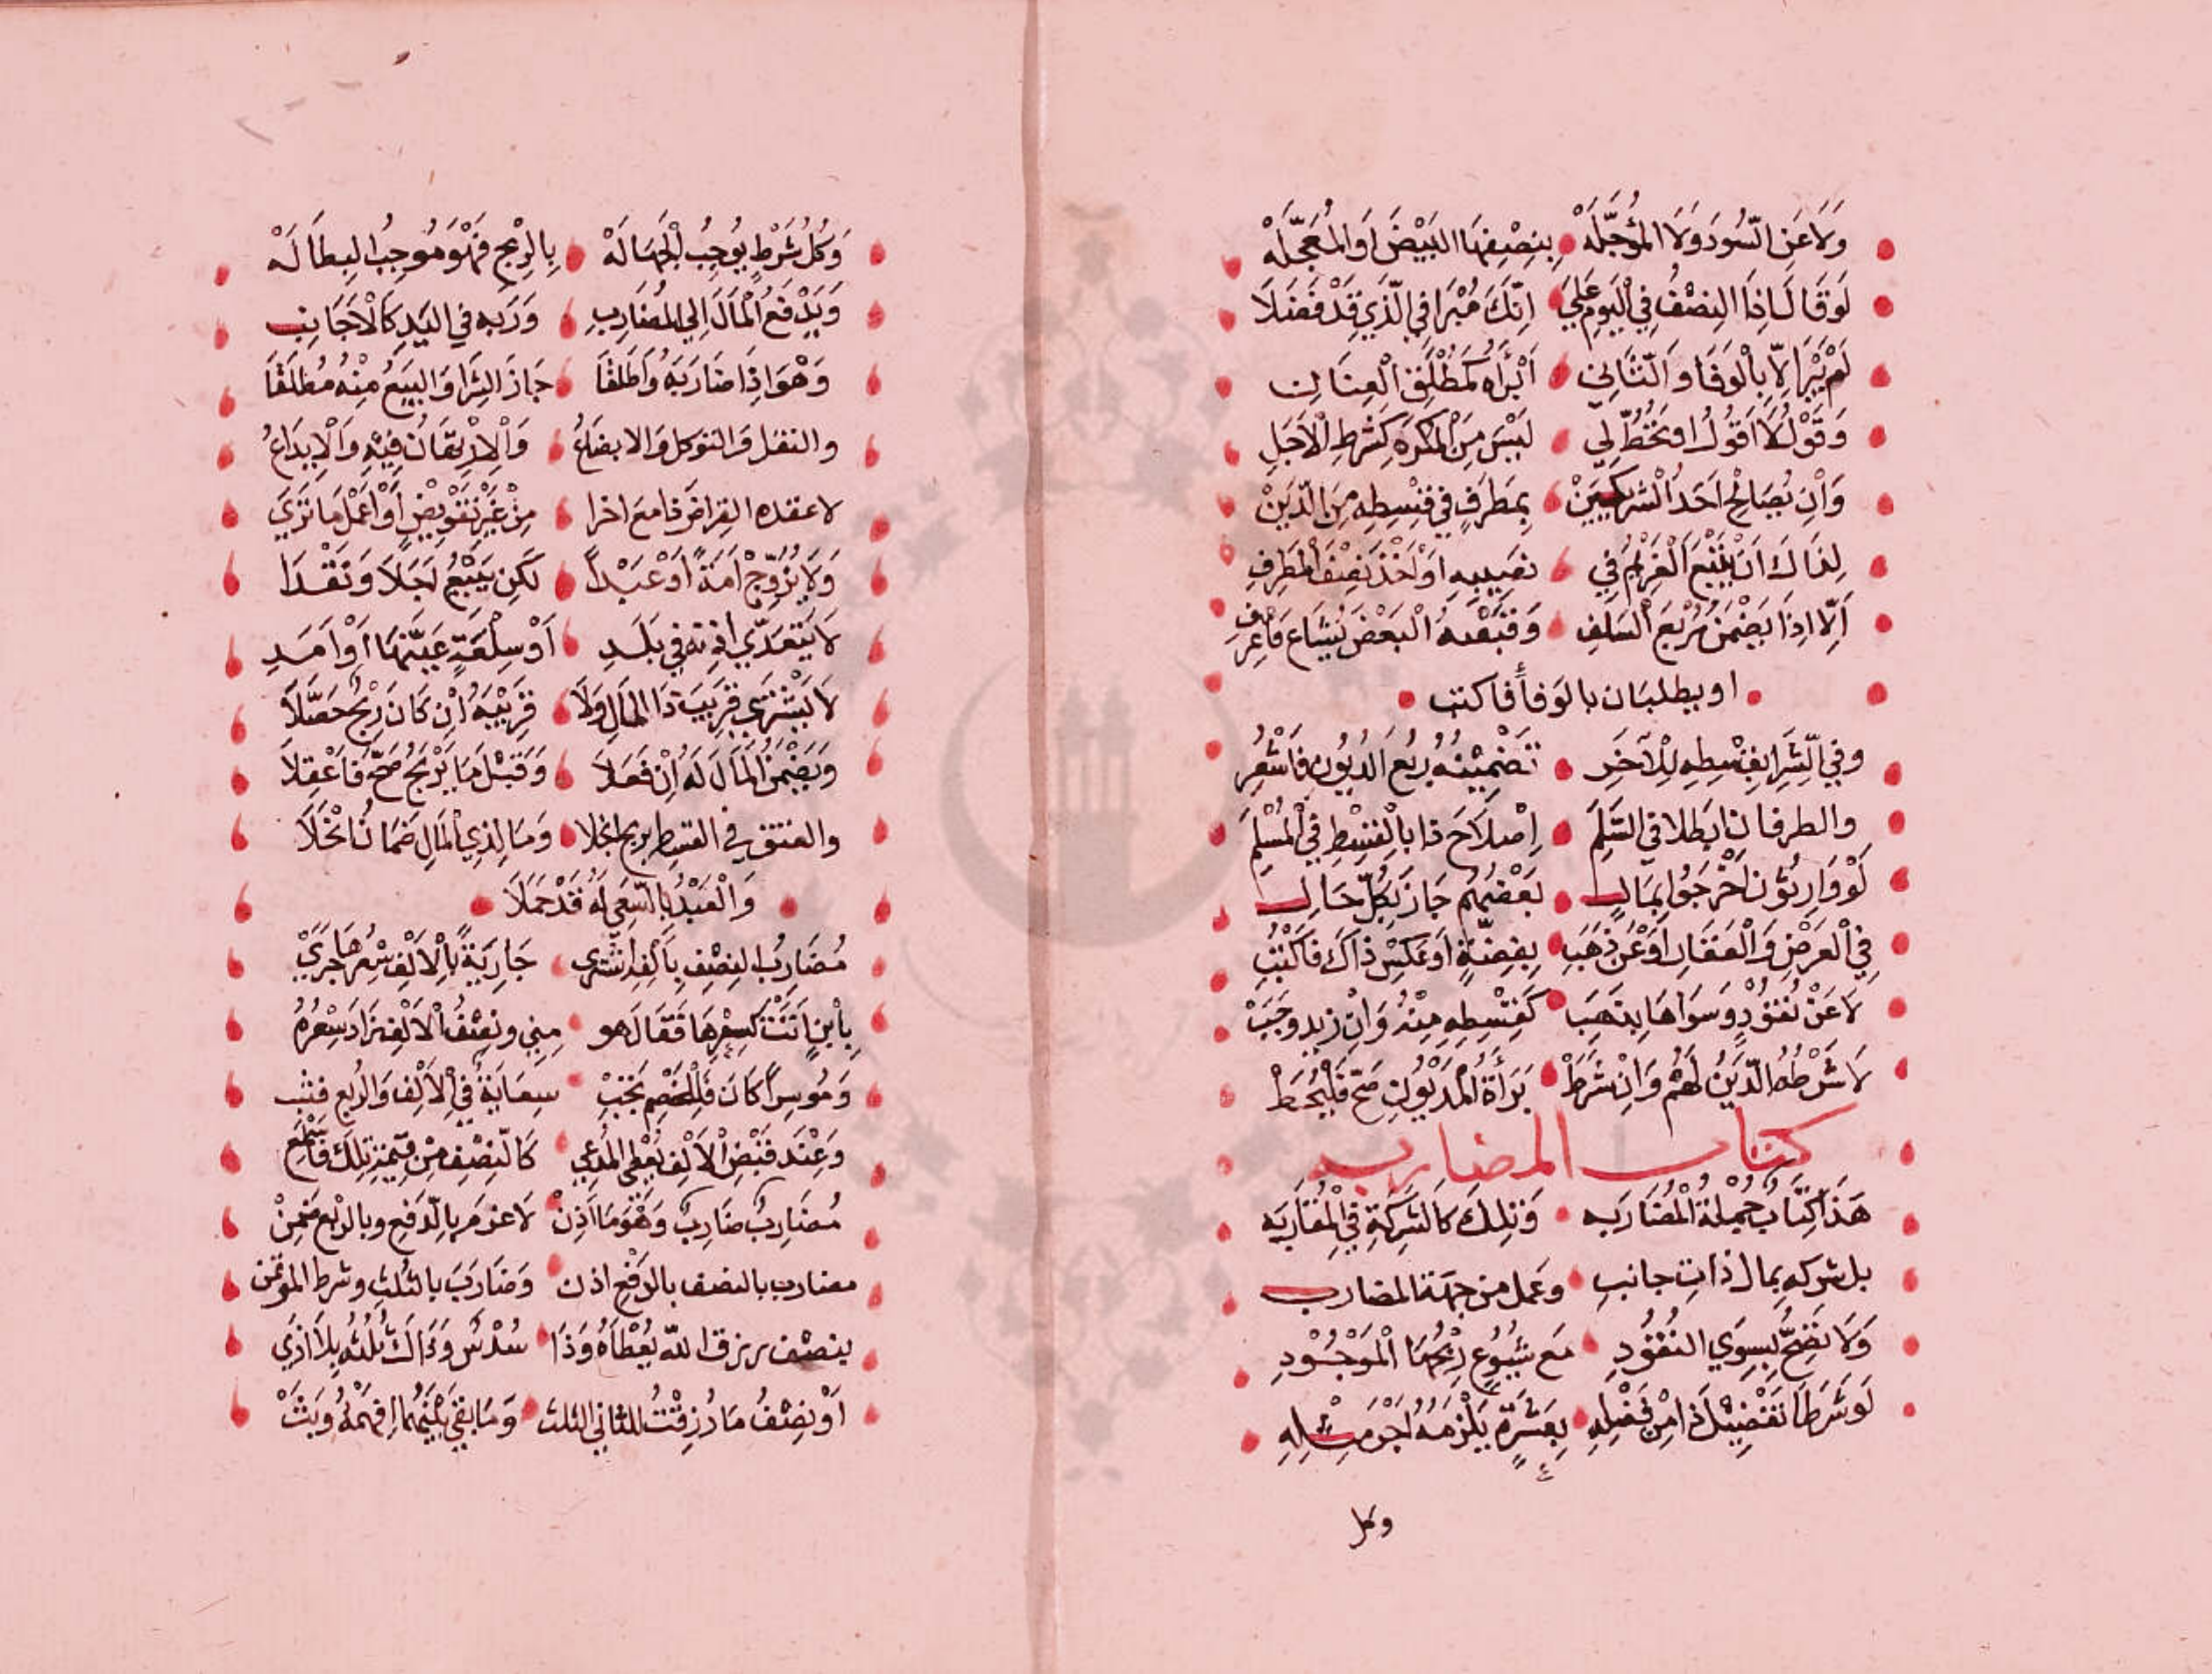 وَلَا عَنِ السُّودِ وَلَا المُؤَجَّلَهْ بِنِصْفِهَا البِيْضَ اَوِ المُعَجَّلَهْ
لَوْ قَالَ اذَا النِصْفُ فِي الْيَوْمِ عَلَيَّ اِنَّكَ مُبْرَا فِي الَّذِي قَدْ فَضَلَا
لَمْ يَبْرَا اِلَّا بِالْوَفَا وَالثَّانِي اَبْرَاهُ كَمُطْلَقِ الْعِنَانِ
وَقَوْلُ لَا اقُولُ اوْ تَحُطَّ لِي لَيْسَ مِنَ الْمُكْرَهِ كَشَرْطِ الْاَجَلِ
وَاِنْ يُصَالِحْ اَحَدُ الْشَرِيكَيْنْ بِمَطْرَفٍ فِي قِسْطِهِ مِنَ الدَّيْنْ
لِذَاكَ اَنْ يَتْبَعَ الْغَرِيْمَ فِي نَصِيبِهِ اوْ اَخْذَ نِصْفِ الْمَطْرَفِ
اِلَّا اِذَا يَضْمَنُ رُبْعَ السَلَفِ وَقَبْضُهُ الْبَعْضَ يُشَاعُ فَاعْرِفِ
او يطلبان بالوفا فاكتب
وَفِي الشِّرَا بِقِسْطِهِ لِلْآخَرِ تَضْمِيْنُهُ رُبُعَ الدُيُونِ فَاشْعُرِ
والطرفان ابطلا في السَّلَمِ اِصْلَاحَ ذا بالْقِسْطِ فِي الْمُسْلَمِ
لَوْ وَارِثُوْنَ اَخْرَجُوا بِمَالِ بَعْضُهُم جَازَ بِكُلِّ حَالِ
فِي الْعَرَضِ وَالْعَقَارِ اَوْ عَنْ ذَهَبِ بِفِضَّةٍ اَوْ عَكْسِ ذَاكَ فَاكْتُبِ
لَا عَنْ نُقُوْدٍ وَسِوَاهَا بِذَهَبِ كَقِسْطِهِ مِنْهُ وَاِنْ زِيدَ وَجَبْ
لَا شَرْطُهُ الدَّيْنُ لَهُمْ وَاِنْ شَرَطْ بَرَأةَ الْمَدْيُوْنِ صَحَّ فَلْيُحَطْ
كتاب المضاربه
هَذَا كِتَابُ جُمْلَةُ الْمُضَارَبَه وَتِلْكَ كَالشَّرِكَةِ فِي الْمُقَارَبَه
بل شركه بِمال ذات جانبِ وعَمل من جهة المضارب
وَلَا تَصِحُّ بِسِوَي النُقُوْدِ مَع شُيُوْعِ رِبْحِهَا الْمَوْجُوْدِ
لَوْ شَرَطَا تَفْضِيْلَ ذَا مِنْ فَضْلِهِ بِعَشْرَةٍ يَلْزَمُهُ اَجْرُ مِثْلِهِ
وكل
وَكُلُّ شَرْطٍ يُوْجِبُ الْجَهَالَهْ بِالرِّبْحِ فَهْوَ مُوْجِبُ البِطَالَهْ
وَيَدْفَعُ الْمَالَ اِلَي الْمُضَارِبِ وَرَبُّه فِي اليَدِ كَالْاَجَانِبِ
وَهْوَ اِذَا ضَارَبَهُ وَاَطْلَقَا جَازَ الشِّرَا وَالبَيْعُ مِنْهُ مُطْلَقَا
والنقل وَالتوكل وَالابضاعُ وَالْاِرْتِهَانُ فِيْهِ وَالْاِيْدَاعُ
لا عقده القراض ذا مع اخرا مِنْ غَيْرِ تَفْوِيْضٍ اَوْ اعْمَلْ مَا تَرَي
وَلَا يُزَوِّجْ اَمَةً اَوْ عَبْداً لَكِنْ يَبِيْعُ اَجَلَا وَنَقْدَا
لَا يَتَعَدَّي اِذْنه في بَلَدِ اَوْ سِلْعَةٍ عَيَّنَهَا اَوْ اَمَدِ
لَا يَشْتَرِي قَرِيْبَ ذَا الْمَالِ وَلَا قَرِيْبَهُ اِنْ كَانَ رِبْحٌ حَصَّلَا
وَيَضْمَنُ الْمَالَ لَهُ اِنْ فَعَلَا وَقَبْلَ مَا يَرْبَحُ صَحَّ فَاعْقِلَا
والعتق في القسط بربح انجلا وَمَا لِذِي الْمَالِ ضَمَانٌ انْخَلَا
وَالْعَبْدُ بِالسَّعْيِ لَهُ قَدْ حَمَلَا
مُضَارِبُ النِصْفِ بِاَلْفٍ اشْتَرَي جَارِيَةً بِالْاَلْفِ سِعْرهَا جَرَيْ
بِابْنٍ اَتَتْ كَسِعْرِهَا فَقَالَ هو مِنِي وَنِصْفُ الْاَلْفِ زَادَ سِعْرُهُ
وَمُوسِراً كَانَ فَلِلْخَصْمِ تَجِبْ سِعَايَةٌ فِي الْاَلْفِ وَالرُبعِ فَثِب
وَعِنْدَ قَبْضِ الْاَلْفِ يُعْطِي الْمُدَّعِي كَالنِّصْفِ مِنْ قِيْمَةِ تِلْكَ فَاسْمَعِ
مُضَارِبٌ ضَارَبَ وَهْوَ مَا اُذِنْ لَا غرمَ بِالدَّفْعِ وبِالرِبْحِ ضَمِنْ
مضارب بالنصف بالدفع اذن وَضَارَبَ بالثُلثِ وشرط الموتمن
بنصْف رزق الله يُعْطَاهُ وَذَا سُدْسٌ وَذَاكَ ثُلْثُهُ بِلَا اَذَي
اَوْ نِصْفُ مَا رُزِقْتُ للثاني الثلث وَمَا بَقِي بَيْنَهُمَا افْهَمْهُ وَبُثْ